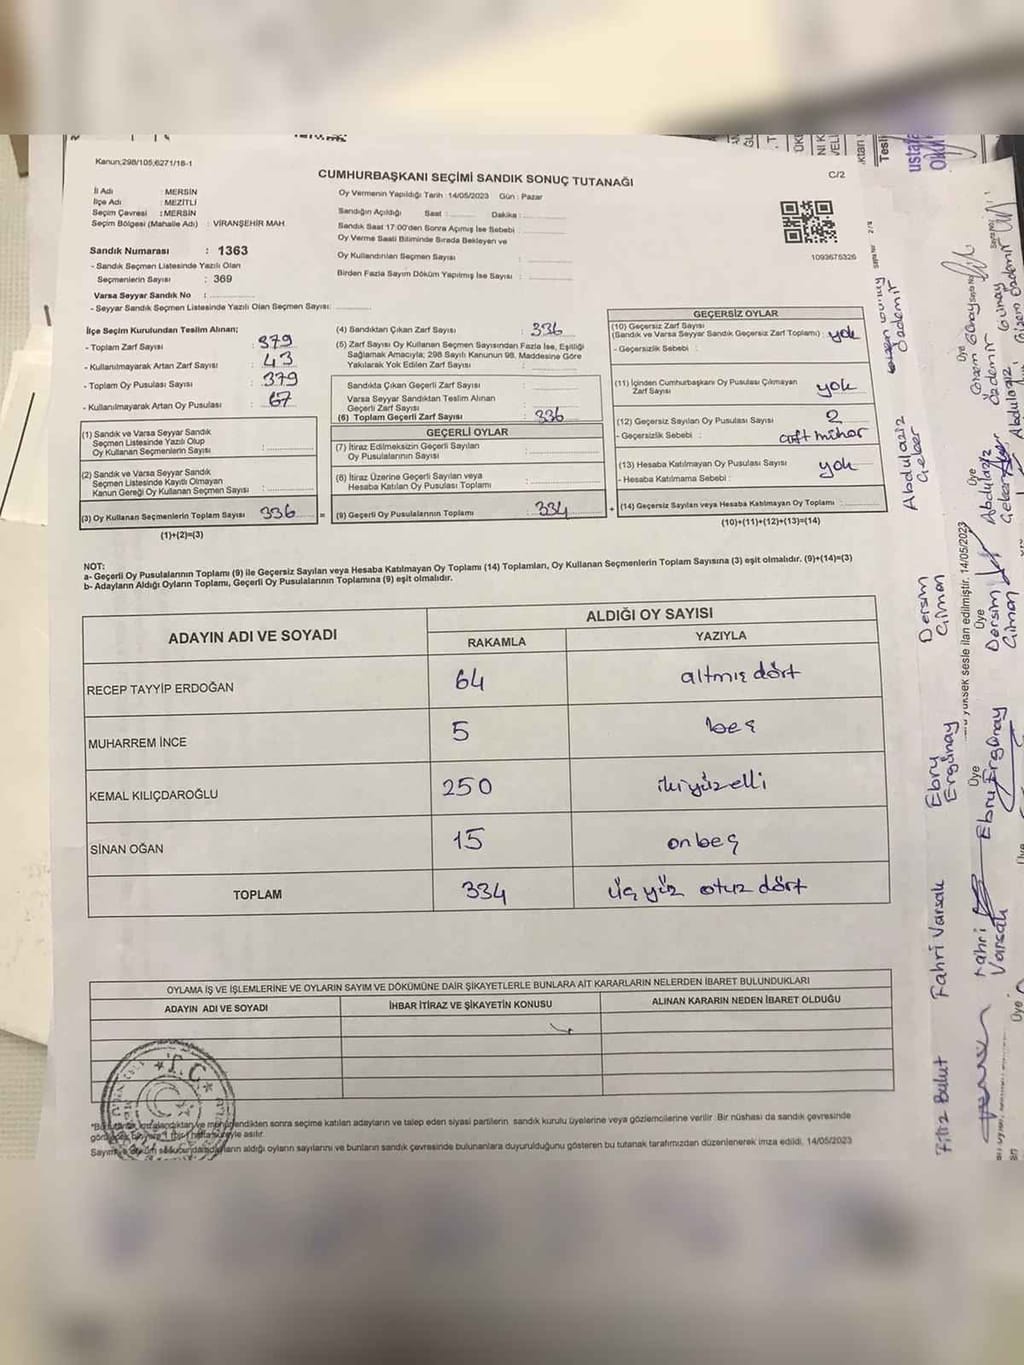 Kanun;298/105;6271/18-1
CUMHURBAŞKANI SEÇİMİ SANDIK SONUÇ TUTANAĞI
C/2
İl Adı : MERSİN
İlçe Adı : MEZİTLİ
Seçim Çevresi : MERSİN
Seçim Bölgesi (Mahalle Adı) : VİRANŞEHİR MAH
Sandık Numarası : 1363
- Sandık Seçmen Listesinde Yazılı Olan
Seçmenlerin Sayısı : 369
Varsa Seyyar Sandık No :
- Seyyar Sandık Seçmen Listesinde Yazılı Olan Seçmen Sayısı:
Oy Vermenin Yapıldığı Tarih :14/05/2023 Gün : Pazar
Sandığın Açıldığı Saat : Dakika :
Sandık Saat 17:00'den Sonra Açımış İse Sebebi :
Oy Verme Saati Bitiminde Sırada Bekleyen ve
Oy Kullandırılan Seçmen Sayısı :
Birden Fazla Sayım Döküm Yapılmış İse Sayısı :
1093675326
İlçe Seçim Kurulundan Teslim Alınan;
- Toplam Zarf Sayısı : 379
- Kullanılmayarak Artan Zarf Sayısı : 43
- Toplam Oy Pusulası Sayısı : 379
- Kullanılmayarak Artan Oy Pusulası : 67
(1) Sandık ve Varsa Seyyar Sandık
Seçmen Listesinde Yazılı Olup
Oy Kullanan Seçmenlerin Sayısı :
(2) Sandık ve Varsa Seyyar Sandık
Seçmen Listesinde Kayıtlı Olmayan
Kanun Gereği Oy Kullanan Seçmen Sayısı :
(3) Oy Kullanan Seçmenlerin Toplam Sayısı 336 =
(1)+(2)=(3)
(4) Sandıktan Çıkan Zarf Sayısı : 336
(5) Zarf Sayısı Oy Kullanan Seçmen Sayısından Fazla İse, Eşitliği
Sağlamak Amacıyla; 298 Sayılı Kanunun 98. Maddesine Göre
Yakılarak Yok Edilen Zarf Sayısı :
Sandıkta Çıkan Geçerli Zarf Sayısı :
Varsa Seyyar Sandıktan Teslim Alınan
Geçerli Zarf Sayısı :
(6) Toplam Geçerli Zarf Sayısı : 336
GEÇERLİ OYLAR
(7) İtiraz Edilmeksizin Geçerli Sayılan
Oy Pusulalarının Sayısı :
(8) İtiraz Üzerine Geçerli Sayılan veya
Hesaba Katılan Oy Pusulası Toplamı :
(9) Geçerli Oy Pusulalarının Toplamı : 334 +
GEÇERSİZ OYLAR
(10) Geçersiz Zarf Sayısı
(Sandık ve Varsa Seyyar Sandık Geçersiz Zarf Toplamı) : yok
- Geçersizlik Sebebi :
(11) İçinden Cumhurbaşkanı Oy Pusulası Çıkmayan
Zarf Sayısı : yok
(12) Geçersiz Sayılan Oy Pusulası Sayısı : 2
- Geçersizlik Sebebi : çift mühür
(13) Hesaba Katılmayan Oy Pusulası Sayısı : yok
- Hesaba Katılmama Sebebi :
(14) Geçersiz Sayılan veya Hesaba Katılmayan Oy Toplamı :
(10)+(11)+(12)+(13)=(14)
NOT:
a- Geçerli Oy Pusulalarının Toplamı (9) ile Geçersiz Sayılan veya Hesaba Katılmayan Oy Toplamı (14) Toplamları, Oy Kullanan Seçmenlerin Toplam Sayısına (3) eşit olmalıdır. (9)+(14)=(3)
b- Adayların Aldığı Oyların Toplamı, Geçerli Oy Pusulalarının Toplamına (9) eşit olmalıdır.
ADAYIN ADI VE SOYADI
ALDIĞI OY SAYISI
RAKAMLA YAZIYLA
RECEP TAYYİP ERDOĞAN 64 altmış dört
MUHARREM İNCE 5 beş
KEMAL KILIÇDAROĞLU 250 ikiyüzelli
SİNAN OĞAN 15 onbeş
TOPLAM 334 üç yüz otuz dört
OYLAMA İŞ VE İŞLEMLERİNE VE OYLARIN SAYIM VE DÖKÜMÜNE DAİR ŞİKAYETLERLE BUNLARA AİT KARARLARIN NELERDEN İBARET BULUNDUKLARI
ADAYIN ADI VE SOYADI İHBAR İTİRAZ VE ŞİKAYETİN KONUSU ALINAN KARARIN NEDEN İBARET OLDUĞU
T.C
sonra seçime katılan adayların ve talep eden siyasi partilerin sandık kurulu üyelerine veya gözlemcilerine verilir. Bir nüshası da sandık çevresinde
asılır.
aldığı oyların sayılarını ve bunların sandık çevresinde bulunanlara duyurulduğunu gösteren bu tutanak tarafımızdan düzenlenerek imza edildi. 14/05/2023
Filiz Bulut
Fahri Varsak
Ebru Ergünay
Dersim Çimen
Abdulaziz Geber
Özdemir
yüksek sesle ilan edilmiştir. 14/05/2023
Üye
Fahri Varsak
Üye
Ebru Ergünay
Üye
Dersim Çimen
Üye
Abdulaziz
Üye
Özdemir